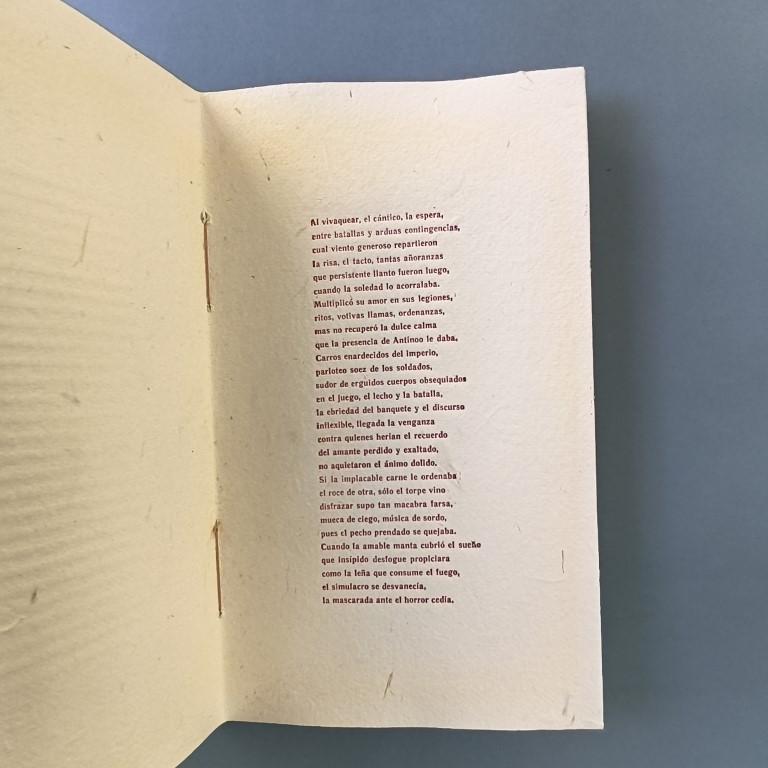 Al vivaquear, el cántico, la espera,
entre batallas y arduas contingencias,
cual viento generoso repartieron
la risa, el tacto, tantas añoranzas
que persistente llanto fueron luego,
cuando la soledad lo acorralaba.
Multiplicó su amor en sus legiones,
ritos, votivas llamas, ordenanzas,
mas no recuperó la dulce calma
que la presencia de Antínoo le daba.
Carros enardecidos del Imperio,
parloteo soez de los soldados,
sudor de erguidos cuerpos obsequiados
en el juego, el lecho y la batalla,
la ebriedad del banquete y el discurso
inflexible, llegada la venganza
contra quienes herían el recuerdo
del amante perdido y exaltado,
no aquietaron el ánimo dolido.
Si la implacable carne le ordenaba
el roce de otra, sólo el torpe vino
disfrazar supo tan macabra farsa,
mueca de ciego, música de sordo,
pues el pecho prendado se quejaba.
Cuando la amable manta cubrió el sueño
que insípido desfogue propiciara
como la leña que consume el fuego,
el simulacro se desvanecía,
la mascarada ante el horror cedía.